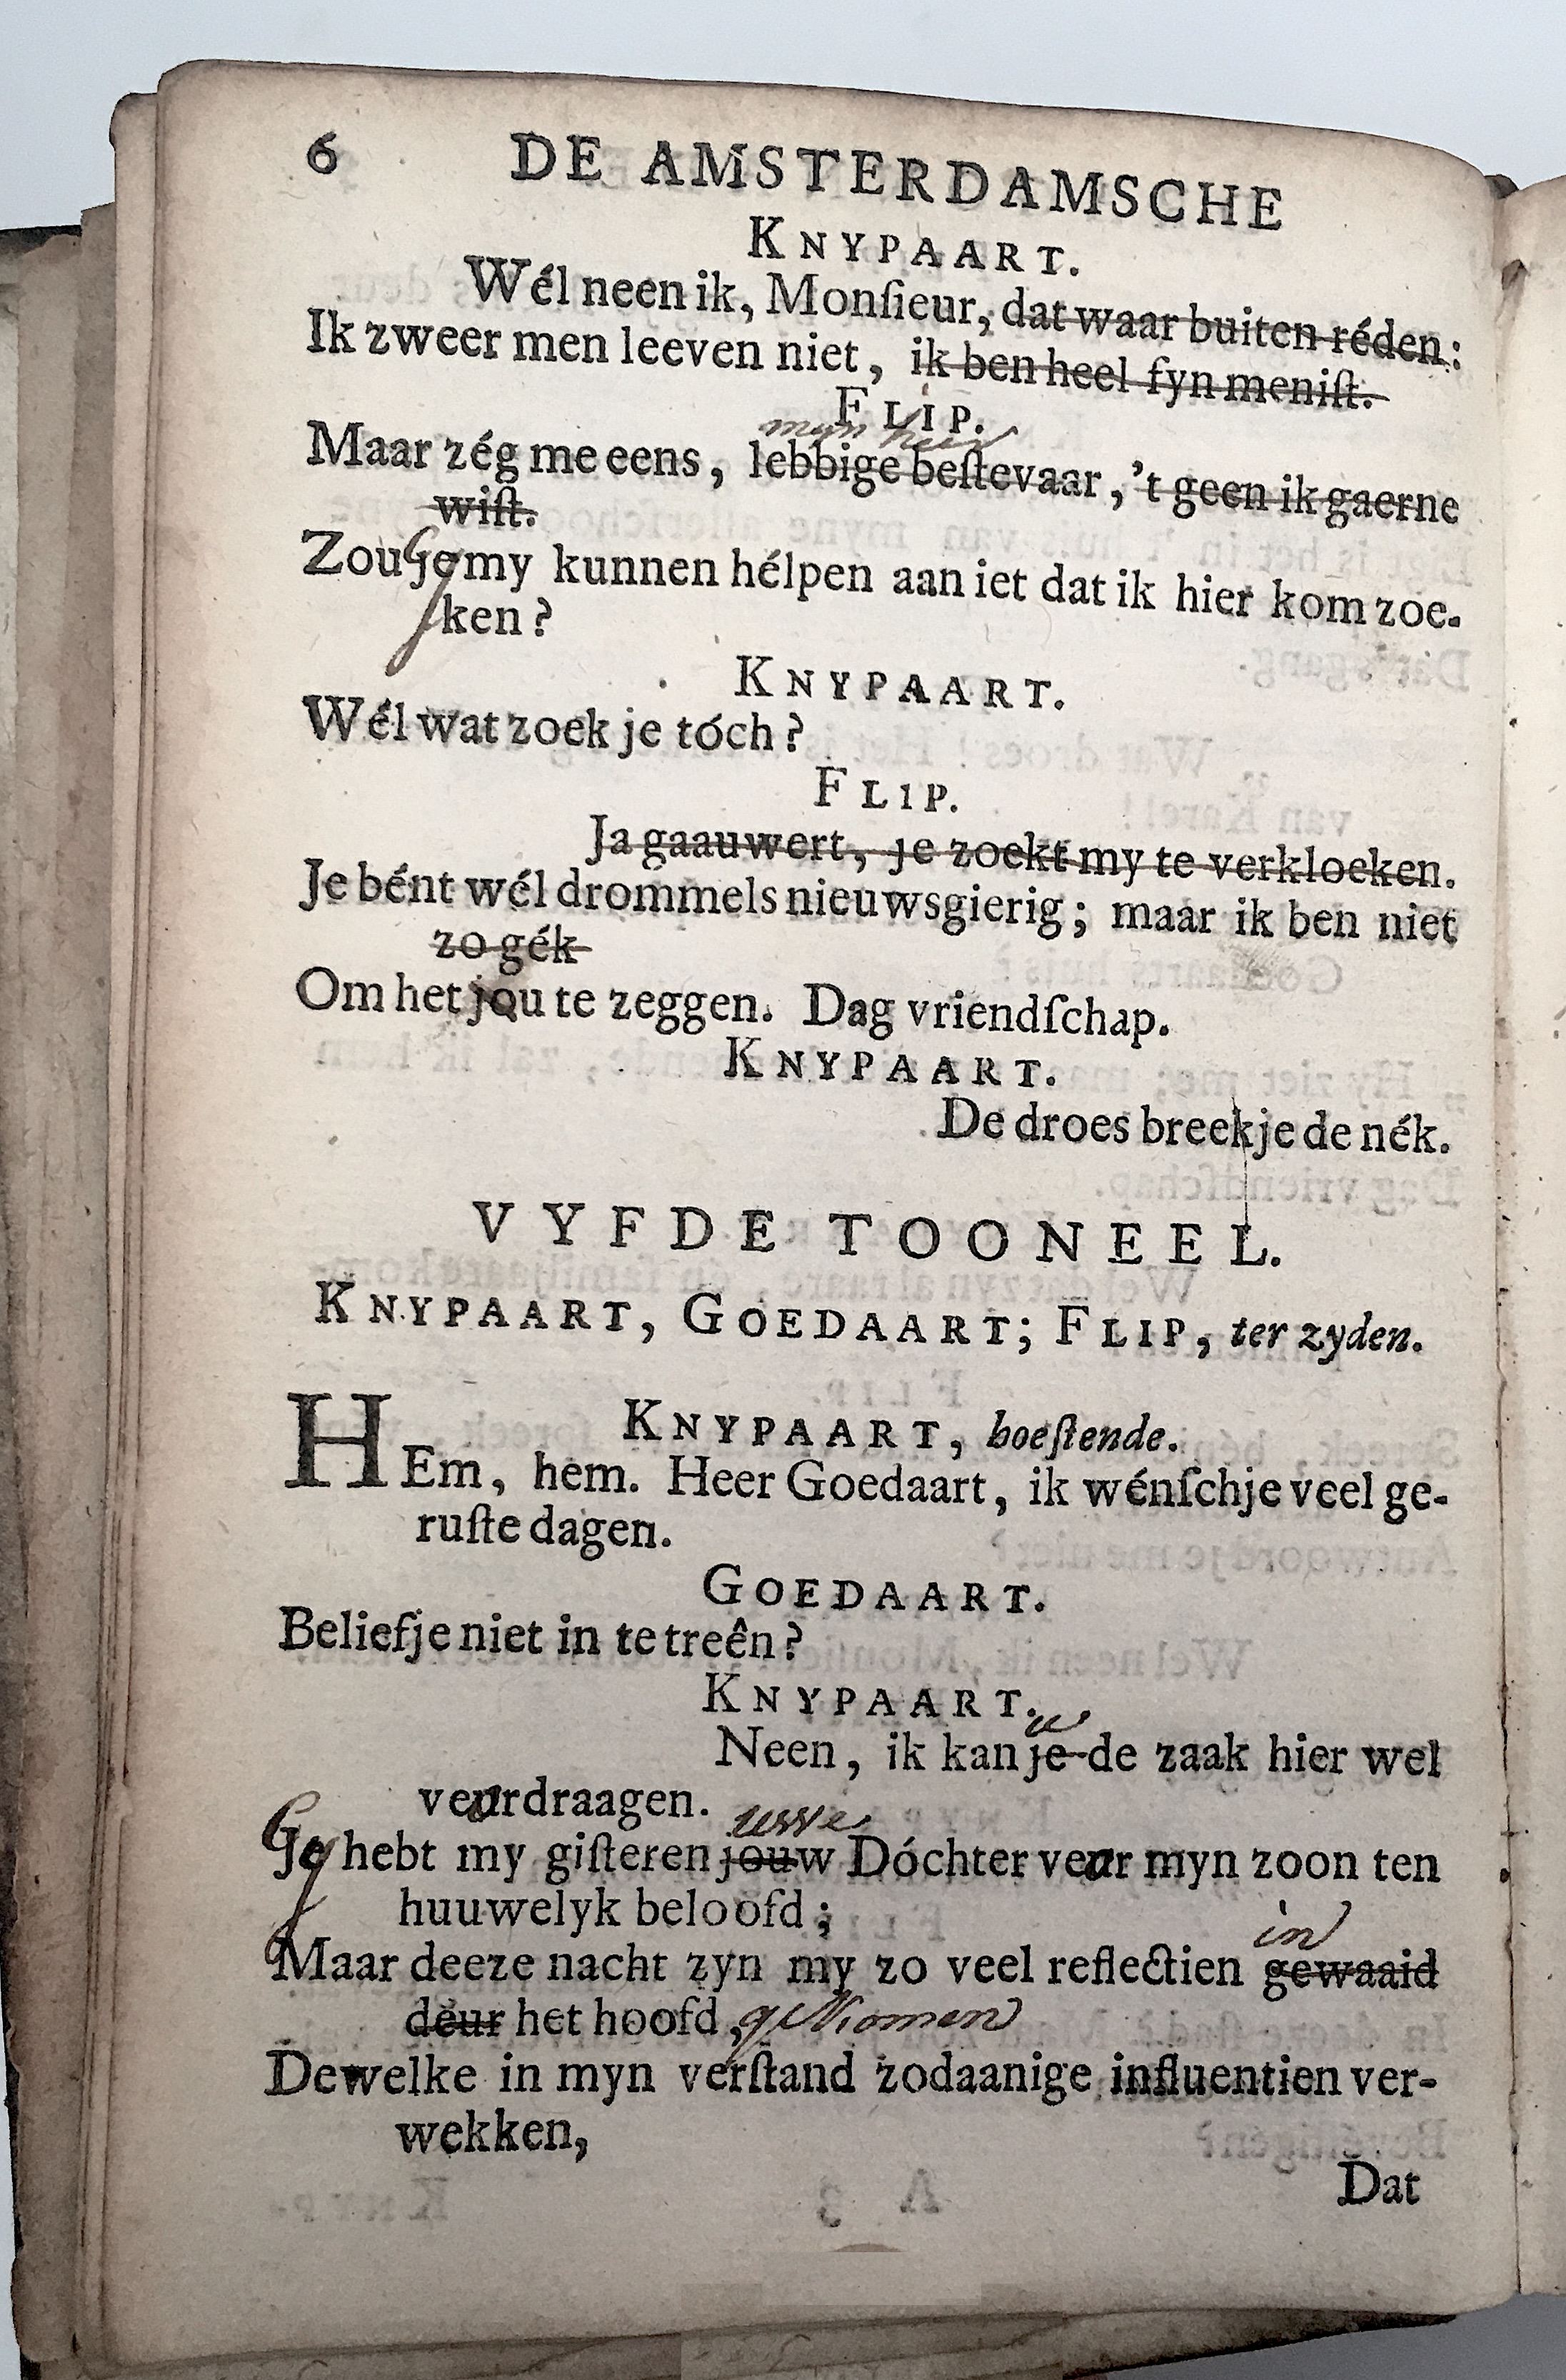 6 DE AMSTERDAMSCHE
KNYPAART.
Wél neen ik, Monſieur, dat waar buiten réden:
Ik zweer men leeven niet, ik ben heel fyn meniſt.
FLIP.
myn heer
Maar zég me eens, lebbige beſtevaar, 't geen ik gaerne
wiſt.
Zou Gy my kunnen hélpen aan iet dat ik hier kom zoe-
ken?
KNYPAART.
Wél wat zoek je tóch?
FLIP.
Ja gaauwert, je zoekt my te verkloeken.
Je bént wél drommels nieuwsgierig; maar ik ben niet
zo gék
Om het jou te zeggen. Dag vriendſchap.
KNYPAART.
De droes breek je de nék.
VYFDE TOONEEL.
KNYPAART, GOEDAART; FLIP, ter zyden.
KNYPAART, hoeſtende.
HEm, hem. Heer Goedaart, ik wénſch je veel ge-
ruſte dagen.
GOEDAART.
Belief je niet in te treên?
KNYPAART.
u
Neen, ik kan je de zaak hier wel
voordraagen.
uwe
Gy hebt my giſteren jouw Dóchter voor myn zoon ten
huuwelyk beloofd;
in
Maar deeze nacht zyn my zo veel reflectien gewaaid
deur het hoofd,
Dewelke in myn verſtand zodaanige influentien ver-
wekken,
Dat